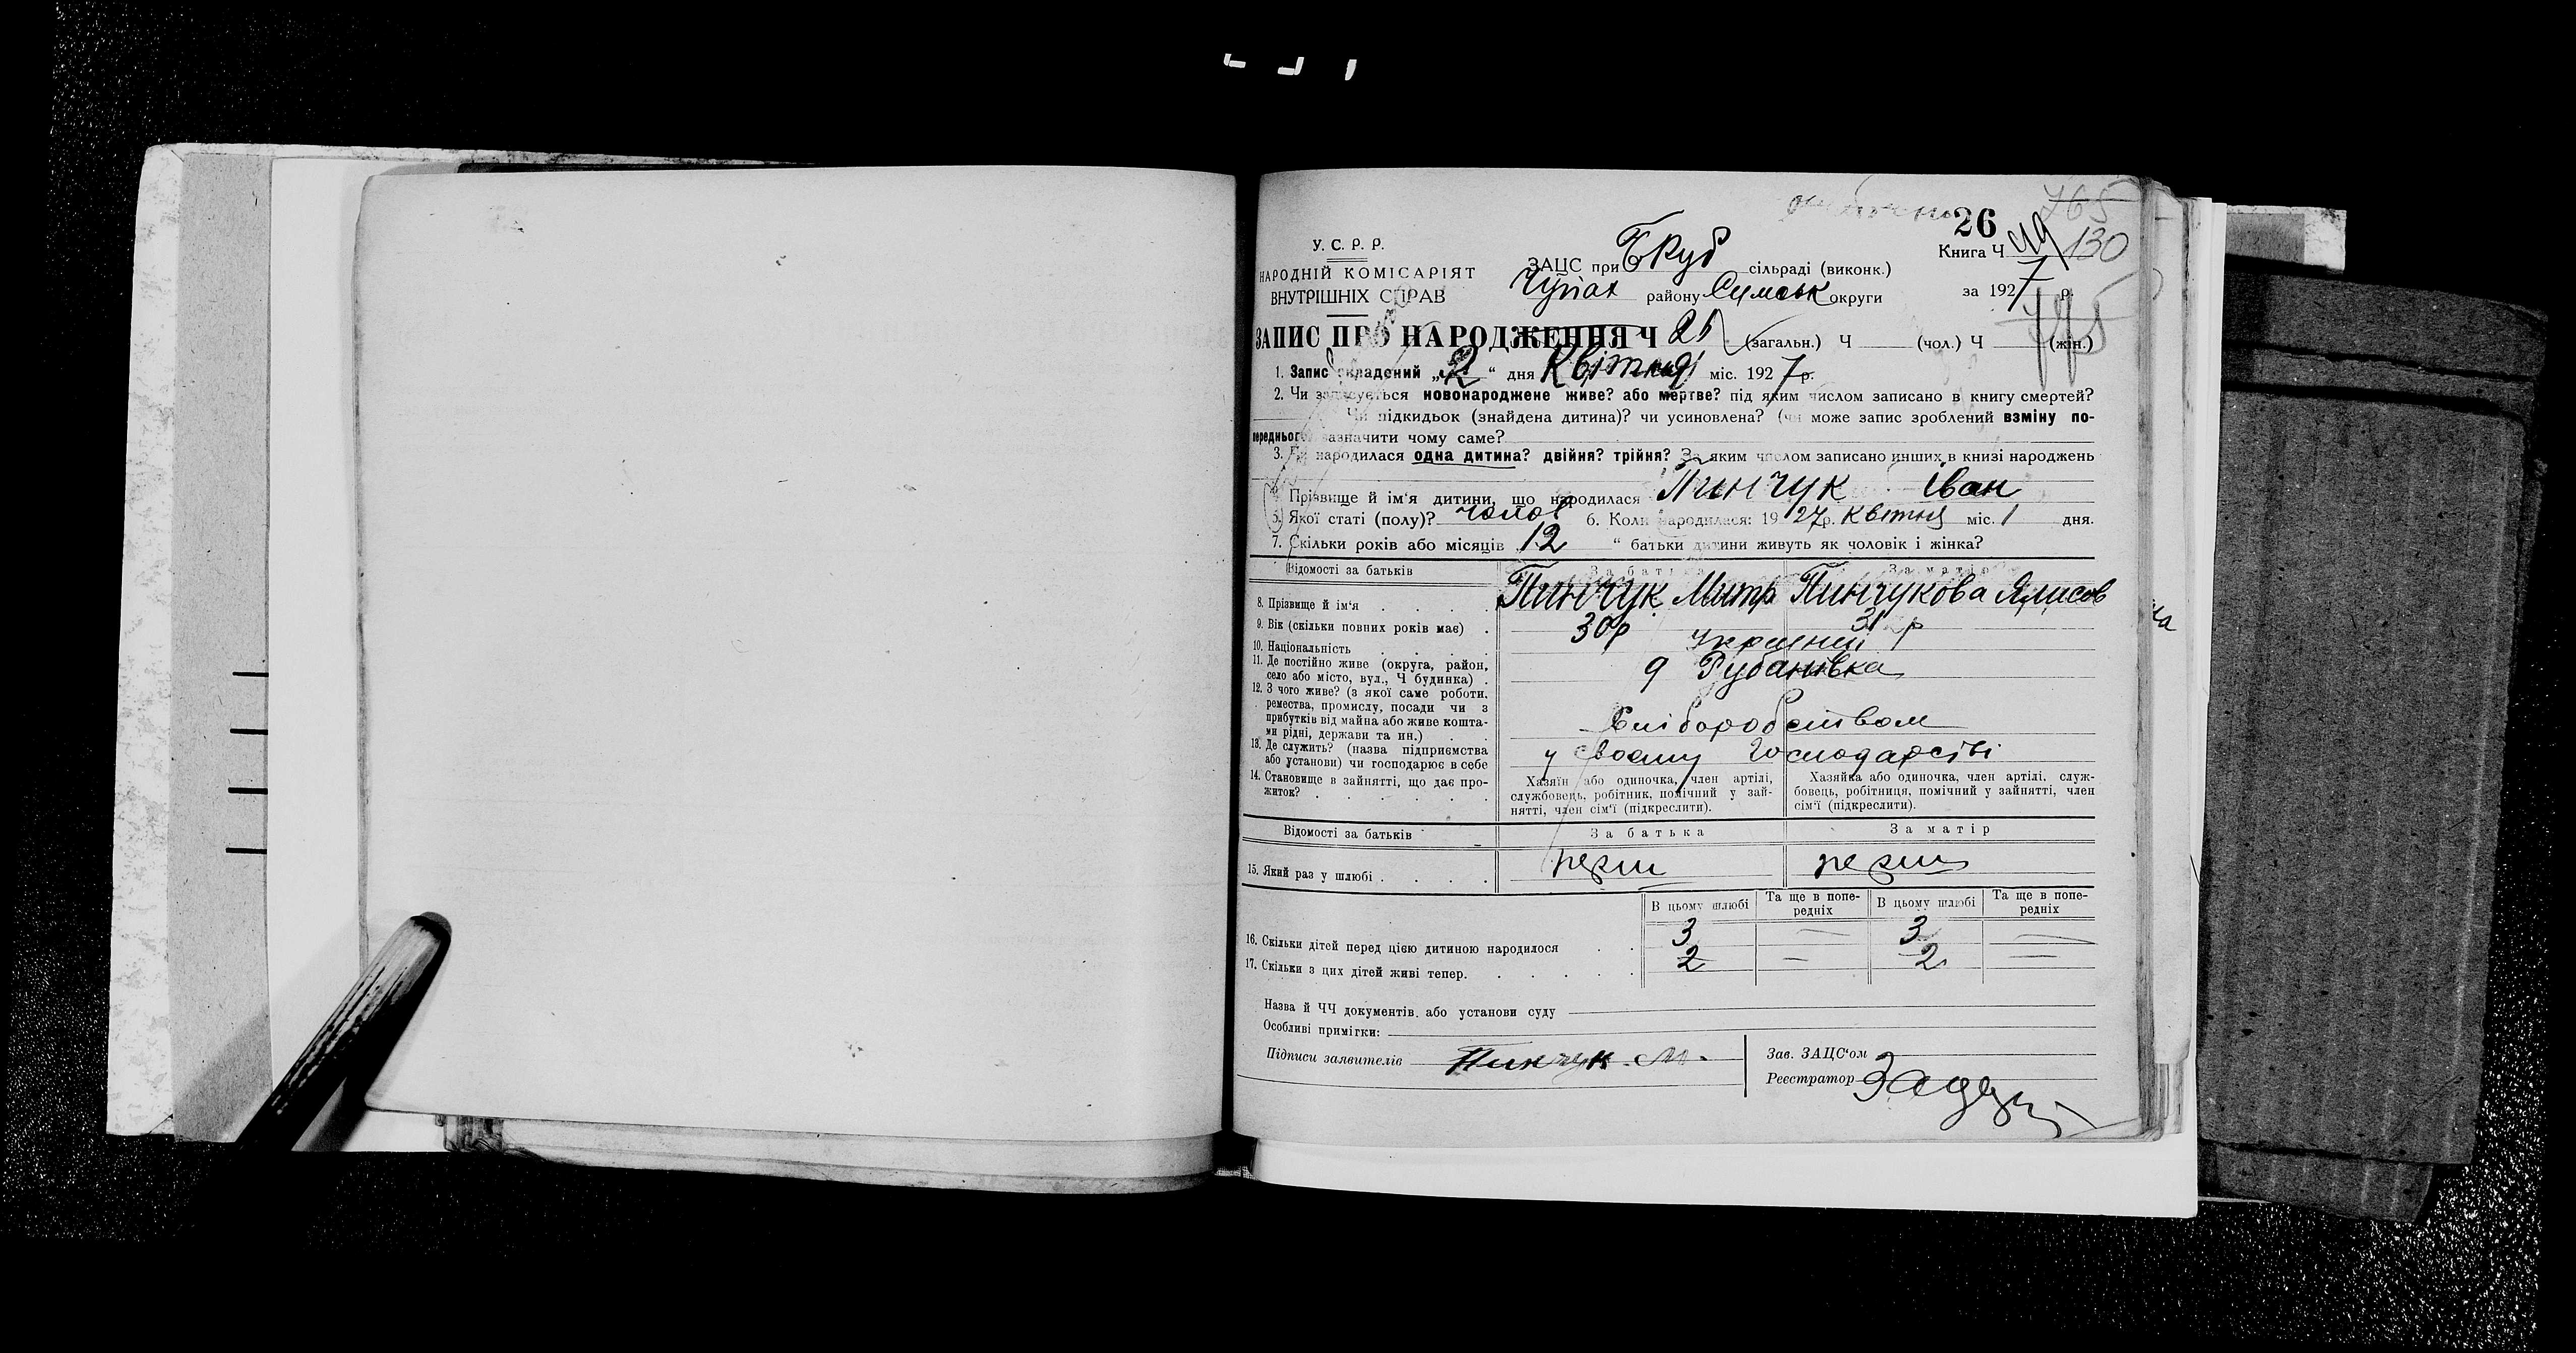 26
765
Книга Ч 49
130
У. С. Р. Р.
НАРОДНІЙ КОМІСАРІЯТ
ВНУТРІШНІХ СПРАВ
ЗАЦС при сільраді (виконк.)
Чупах району Сумськ округи
за 1927 р.
ЗАПИС ПРО НАРОДЖЕННЯ Ч 25 (загальн.) Ч (чол.) Ч (жін.)
1. Запис складений „2“ дня Квітня міс. 1927 р.
2. Чи записується новонароджене живе? або мертве? під яким числом записано в книгу смертей?
Чи підкидьок (знайдена дитина)? чи усиновлена? (чи може запис зроблений взміну по-
переднього) зазначити чому саме?
3. Чи народилася одна дитина? двійня? трійня? За яким числом записано инших в книзі народжень
4. Прізвище й ім'я дитини, що народилася Пинчук Іван
5. Якої статі (полу)? чолов 6. Коли народилася: 1927р. квітня міс. 1 дня.
7. Скільки років або місяців 12 “ батьки дитини живуть як чоловік і жінка?
Відомості за батьків За батька За матір
8. Прізвище й ім'я Пинчук Митр Пинчукова
9. Вік (скільки повних років має) 30р 31 р
10. Національність
11. Де постійно живе (округа, район,
село або місто, вул., Ч будинка) Рубанівка
12. З чого живе? (з якої саме роботи,
ремества, промислу, посади чи з
прибутків від майна або живе кошта-
ми рідні, держави та ин.) Хліборобством
13. Де служить? (назва підприємства
або установи) чи господарює в себе у своему Господарстві
14. Становище в зайнятті, що дає про-
житок?
Хазяїн або одиночка, член артілі,
службовець, робітник, помічний у зай-
нятті, член сім'ї (підкреслити).
Хазяйка або одиночка, член артілі, служ-
бовець, робітниця, помічний у зайнятті, член
сім'ї (підкреслити).
Відомості за батьків За батька За матір
15. Який раз у шлюбі перш перш
В цьому шлюбі Та ще в попе-
редніх В цьому шлюбі Та ще в попе-
редніх
16. Скільки дітей перед цією дитиною народилося 3 — 3 —
17. Скільки з цих дітей живі тепер. 2 — 2 —
Назва й ЧЧ документів або установи суду
Особливі примітки:
Підписи заявителів Пинчук М.
Зав. ЗАЦС'ом
Реєстратор